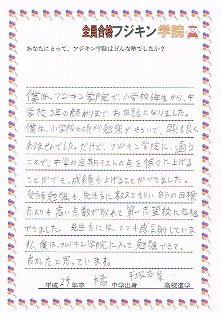 全員合格フジキン学院
あなたにとって、フジキン学院はどんな塾でしたか?
僕は、フジキン学院で、小学校6年生から、中
学校3年の終わりまでお世話になりました。
僕は、小学校の時が勉強がキライで、頭も良く
ありませんでした。だけど、フジキン学院に通う
ことで、中学の定期テストの点を伸びて上げる
ことができ、成績も上げることができました。
勉強も、先生方に教えてもらい自分の目標
点よりも高い点数が取れて第一志望校に合格
できました。先生方にはとても感謝していま
す。僕は、フジキン学院に入って勉強できて、
良かったと思っています。
平成29年卒 橘 中学出身 高校進学